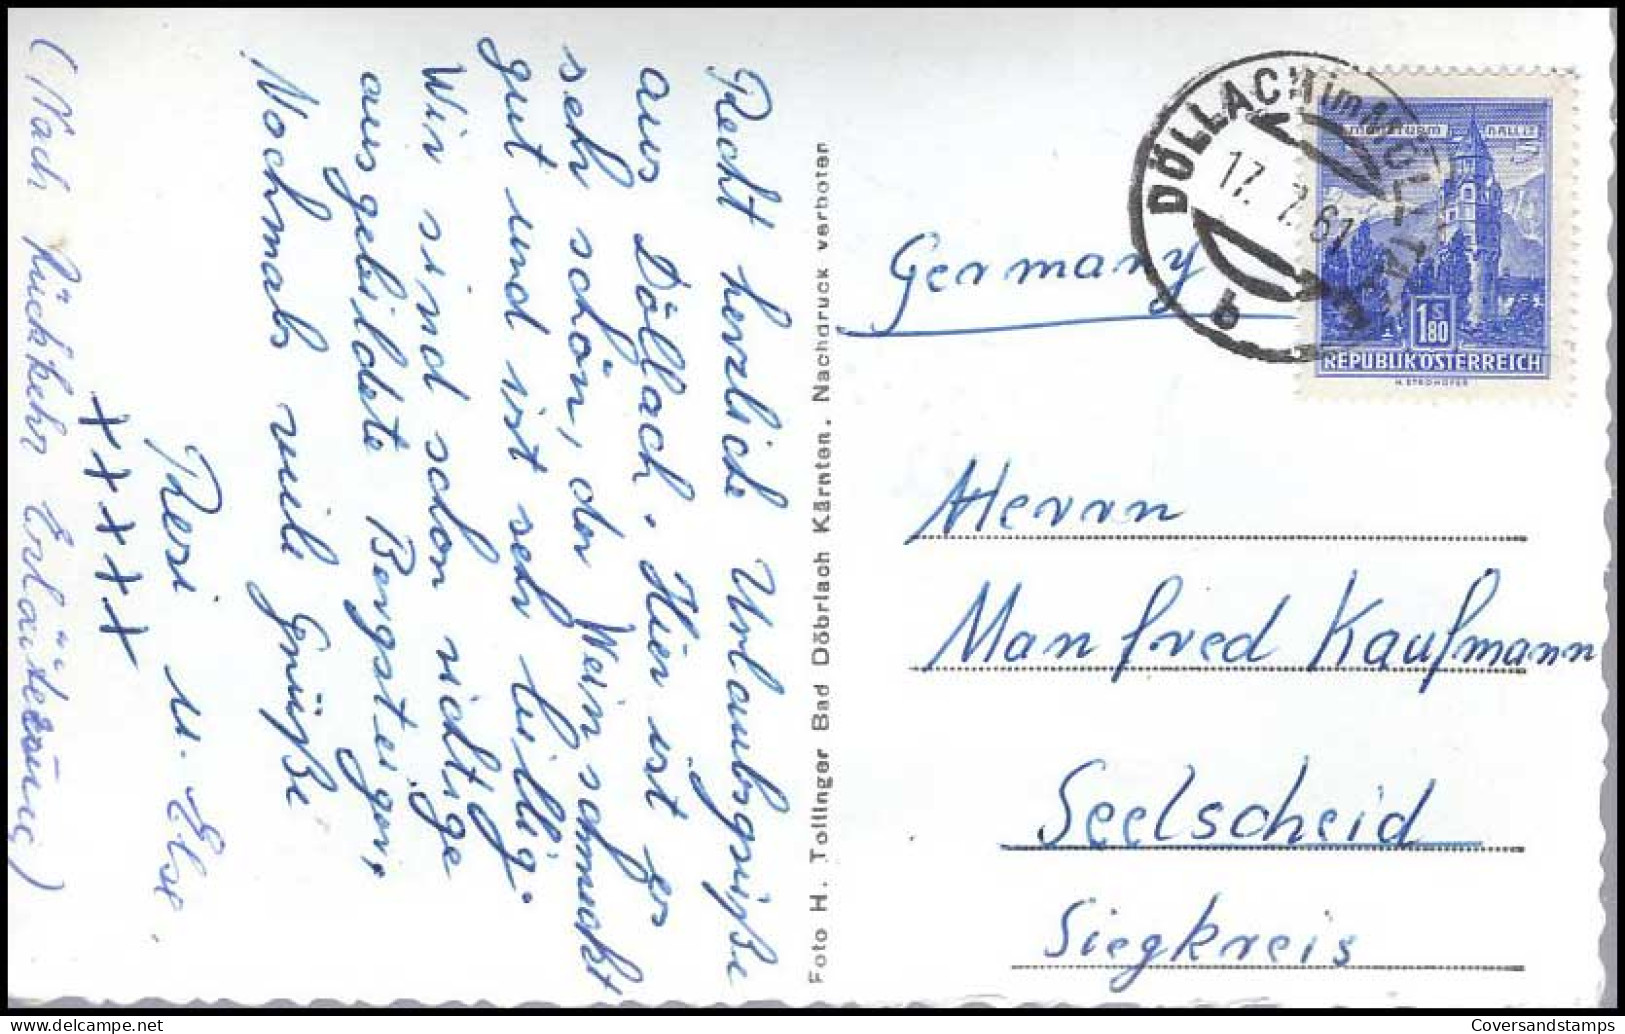 Recht herzliche Urlaubsgrüße
aus Döllach. Hier ist es
sehr schön, der Wein schmeckt
gut und ist sehr billig.
Wir sind schon richtige
ausgebildete Bergsteiger.
Nochmals viele Grüße
Resi u. Else
++++
(Nach Rückkehr Erläuterung)
Foto H. Tollinger Bad Döbrlach Kärnten. Nachdruck verboten
Germany
DÖLLACH im MÖLLTALE
17. 7. 61
b
NALL i.T.
1S80
REPUBLIK ÖSTERREICH
H. STROHOFER
Herrn
Manfred Kaufmann
Seelscheid
Siegkreis
Coversandstamps